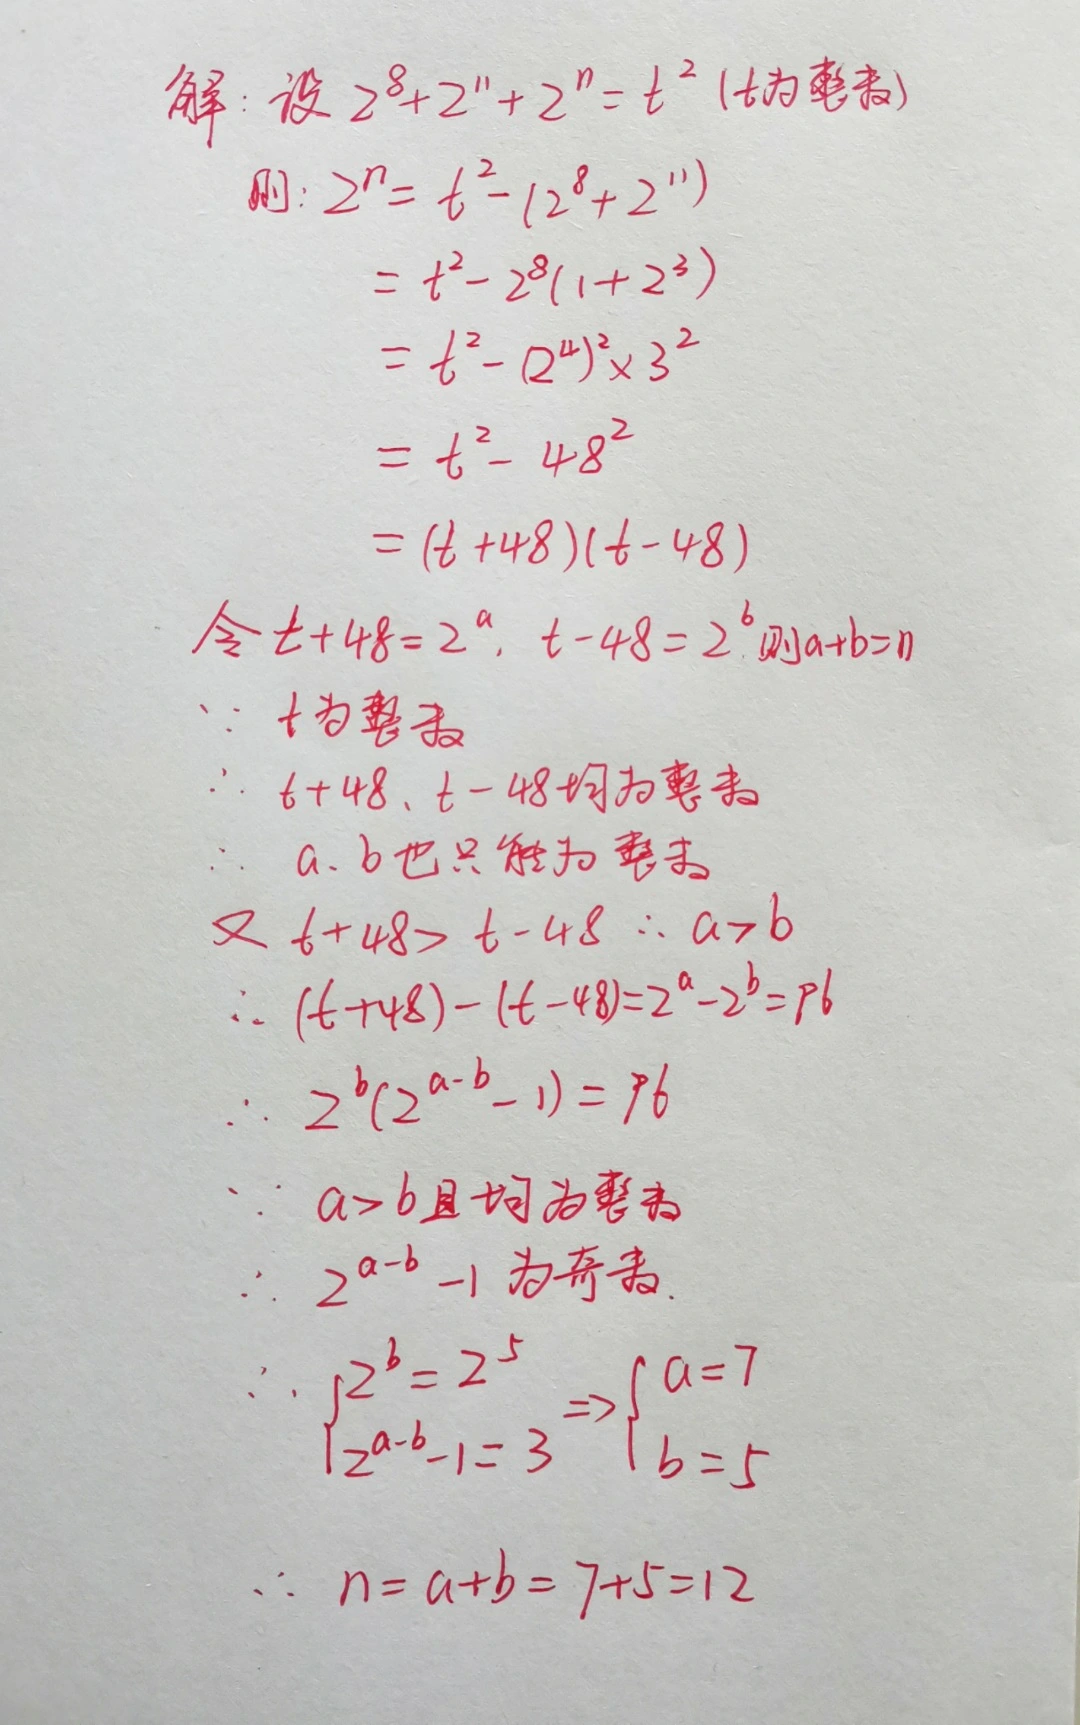 解：设 2⁸+2¹¹+2ⁿ=t² (t为整数)
则：2ⁿ= t²-(2⁸+2¹¹)
= t²-2⁸(1+2³)
= t²-(2⁴)²×3²
= t²-48²
=(t+48)(t-48)
令 t+48=2ᵃ, t-48=2ᵇ,则a+b=n
∵ t为整数
∴ t+48、t-48均为整数
∴ a、b也只能为整数
又 t+48> t-48 ∴ a>b
∴ (t+48)-(t-48)=2ᵃ-2ᵇ=96
∴ 2ᵇ(2ᵃ⁻ᵇ-1)=96
∵ a>b且均为整数
∴ 2ᵃ⁻ᵇ-1为奇数.
∴ {2ᵇ=2⁵ => {a=7
2ᵃ⁻ᵇ-1=3 b=5
∴ n=a+b=7+5=12